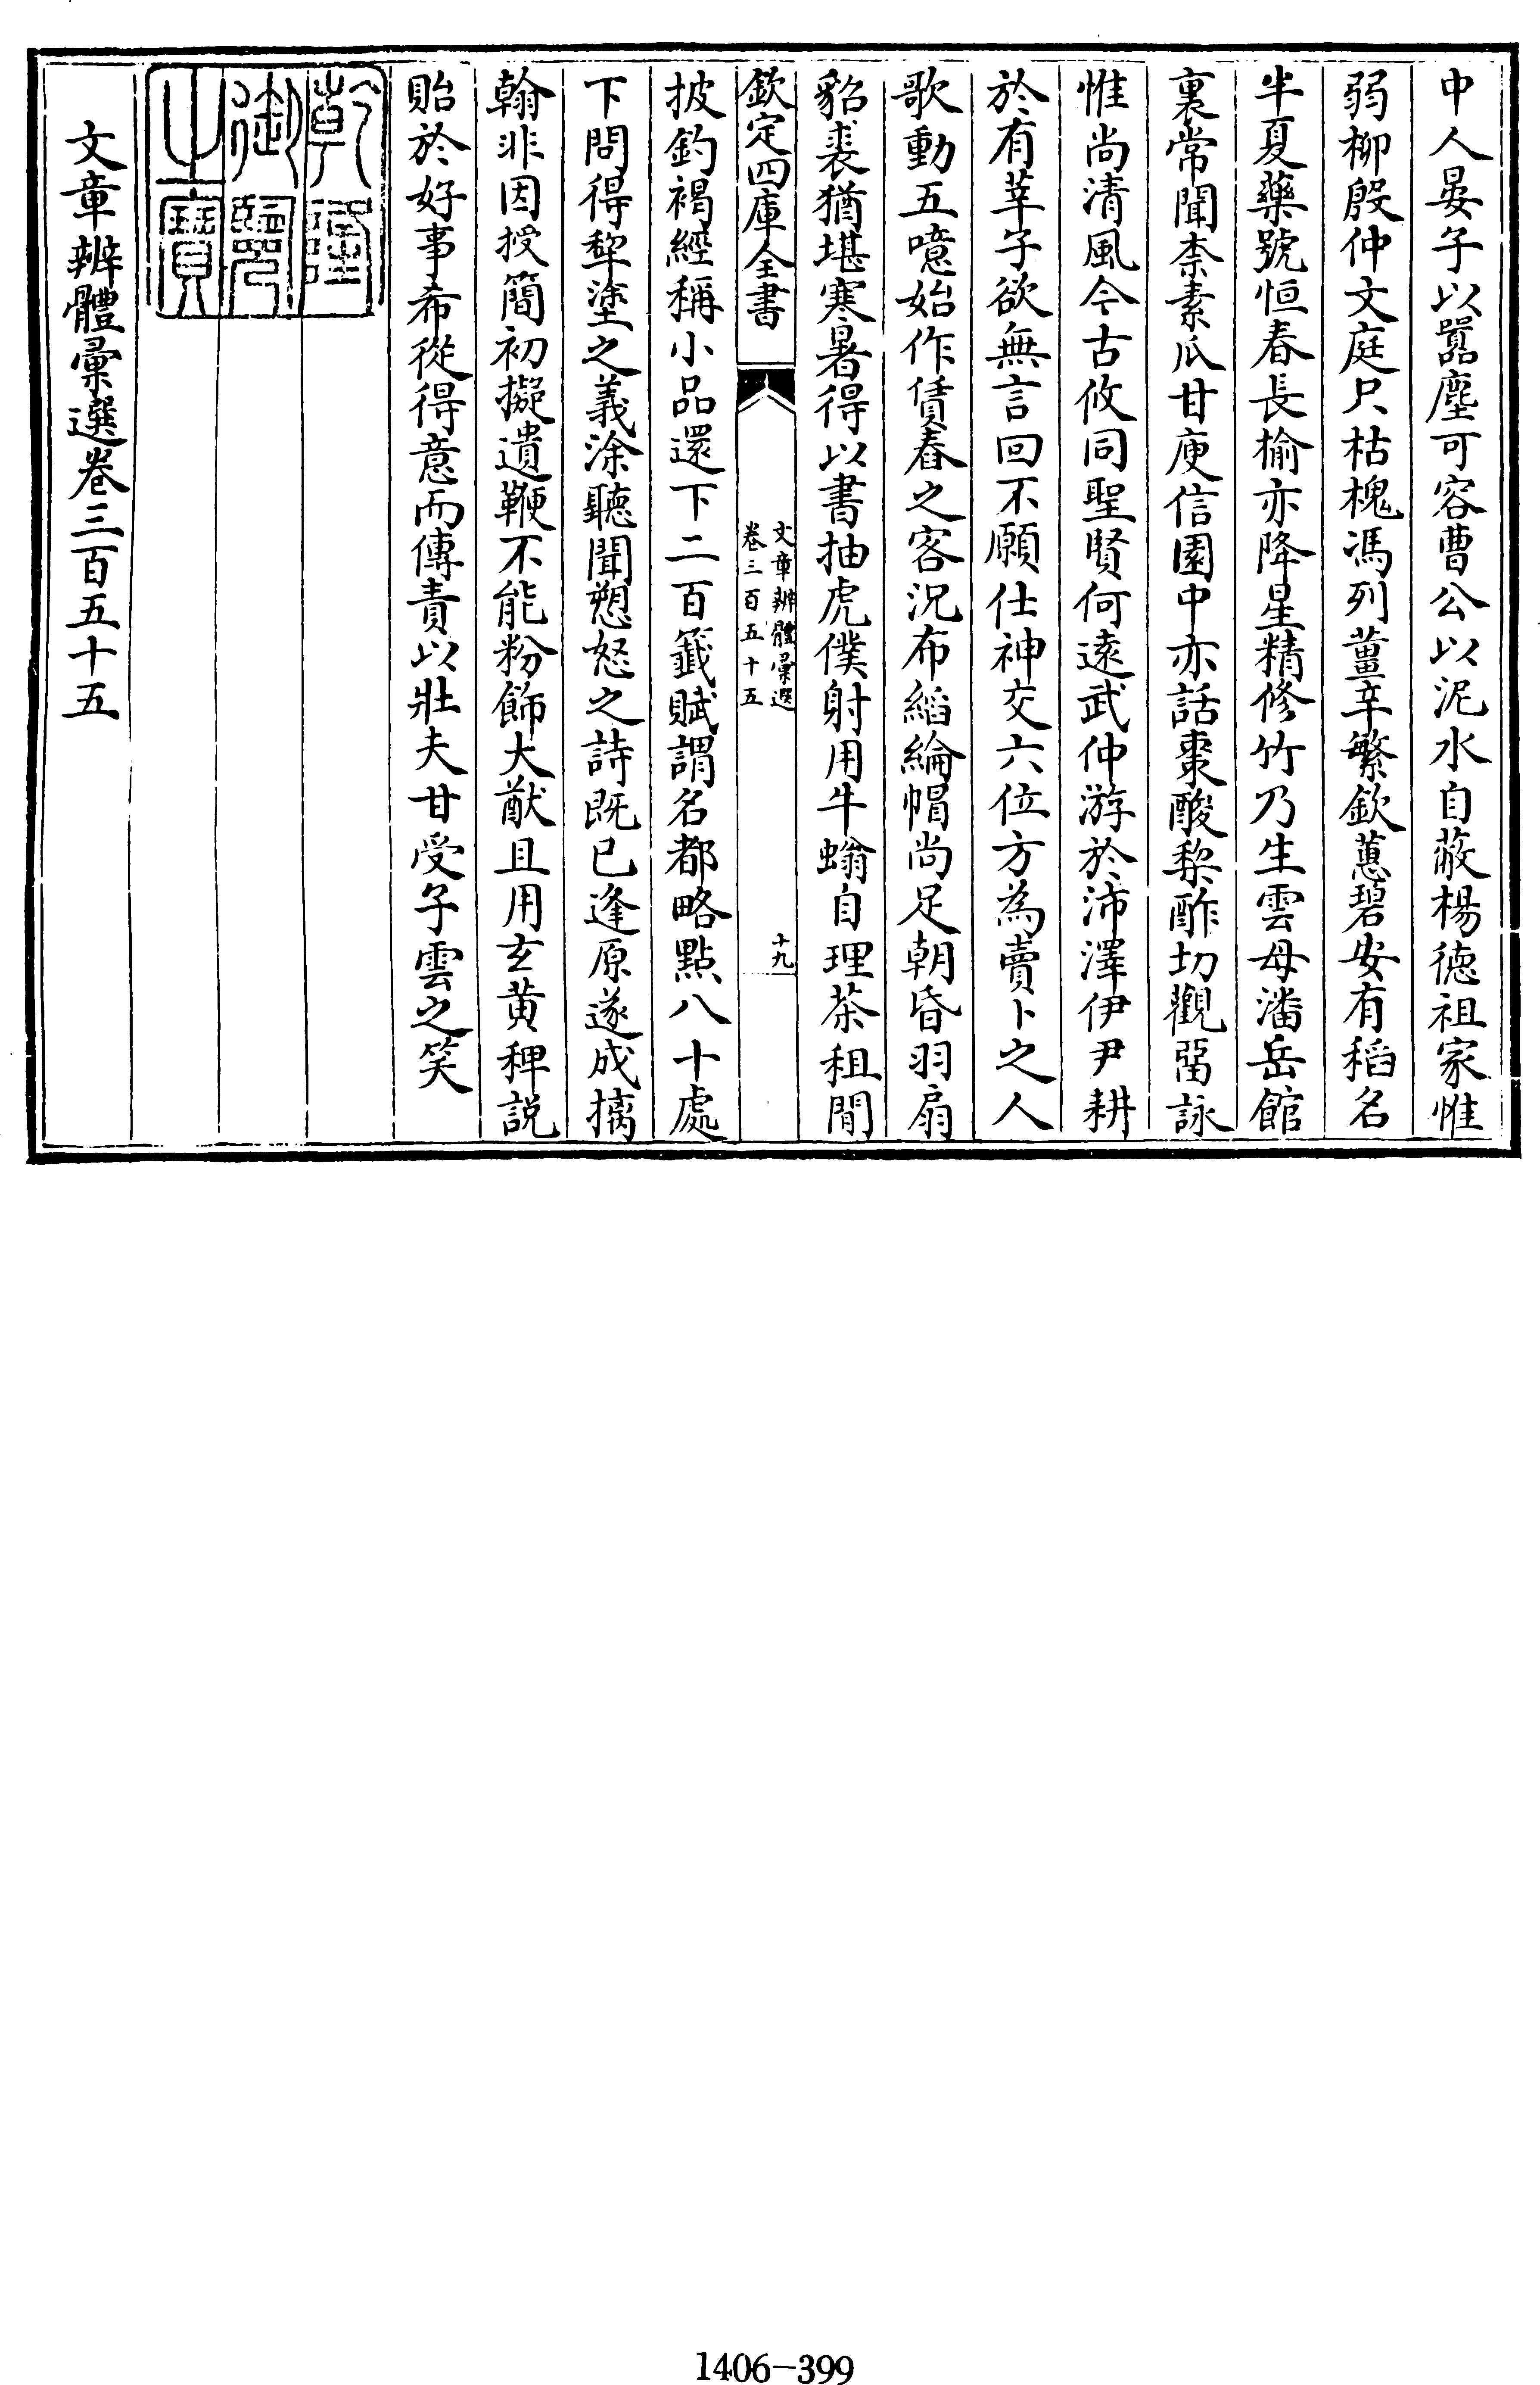 中人晏子以囂塵可容曹公以泥水自蔽楊德祖家惟
弱柳殷仲文庭只枯槐馮列薑辛繁欽蕙碧安有稻名
半夏藥號恒春長榆亦降星精修竹乃生雲母潘岳館
裏常聞柰素瓜甘庾信園中亦話棗酸梨酢切觀畱詠
惟尚清風今古攸同聖賢何遠武仲游於沛澤伊尹耕
於有莘子欲無言回不願仕神交六位方為賣卜之人
歌動五噫始作賃舂之客況布縚綸帽尚足朝昏羽扇
貂裘猶堪寒暑得以書抽虎僕射用牛螉自理茶租閒
欽定四庫全書
文章辨體彙選
卷三百五十五
十九
披釣褐經稱小品還下二百籤賦謂名都略點八十處
下問得犂塗之義涂聽聞愬怒之詩既已逢原遂成摛
翰非因授簡初擬遺鞭不能粉飾大猷且用玄黄稗説
貽於好事希從得意而傳責以壯夫甘受子雲之笑
乾隆
御覽
之寶
文章辨體彙選卷三百五十五
1406-399